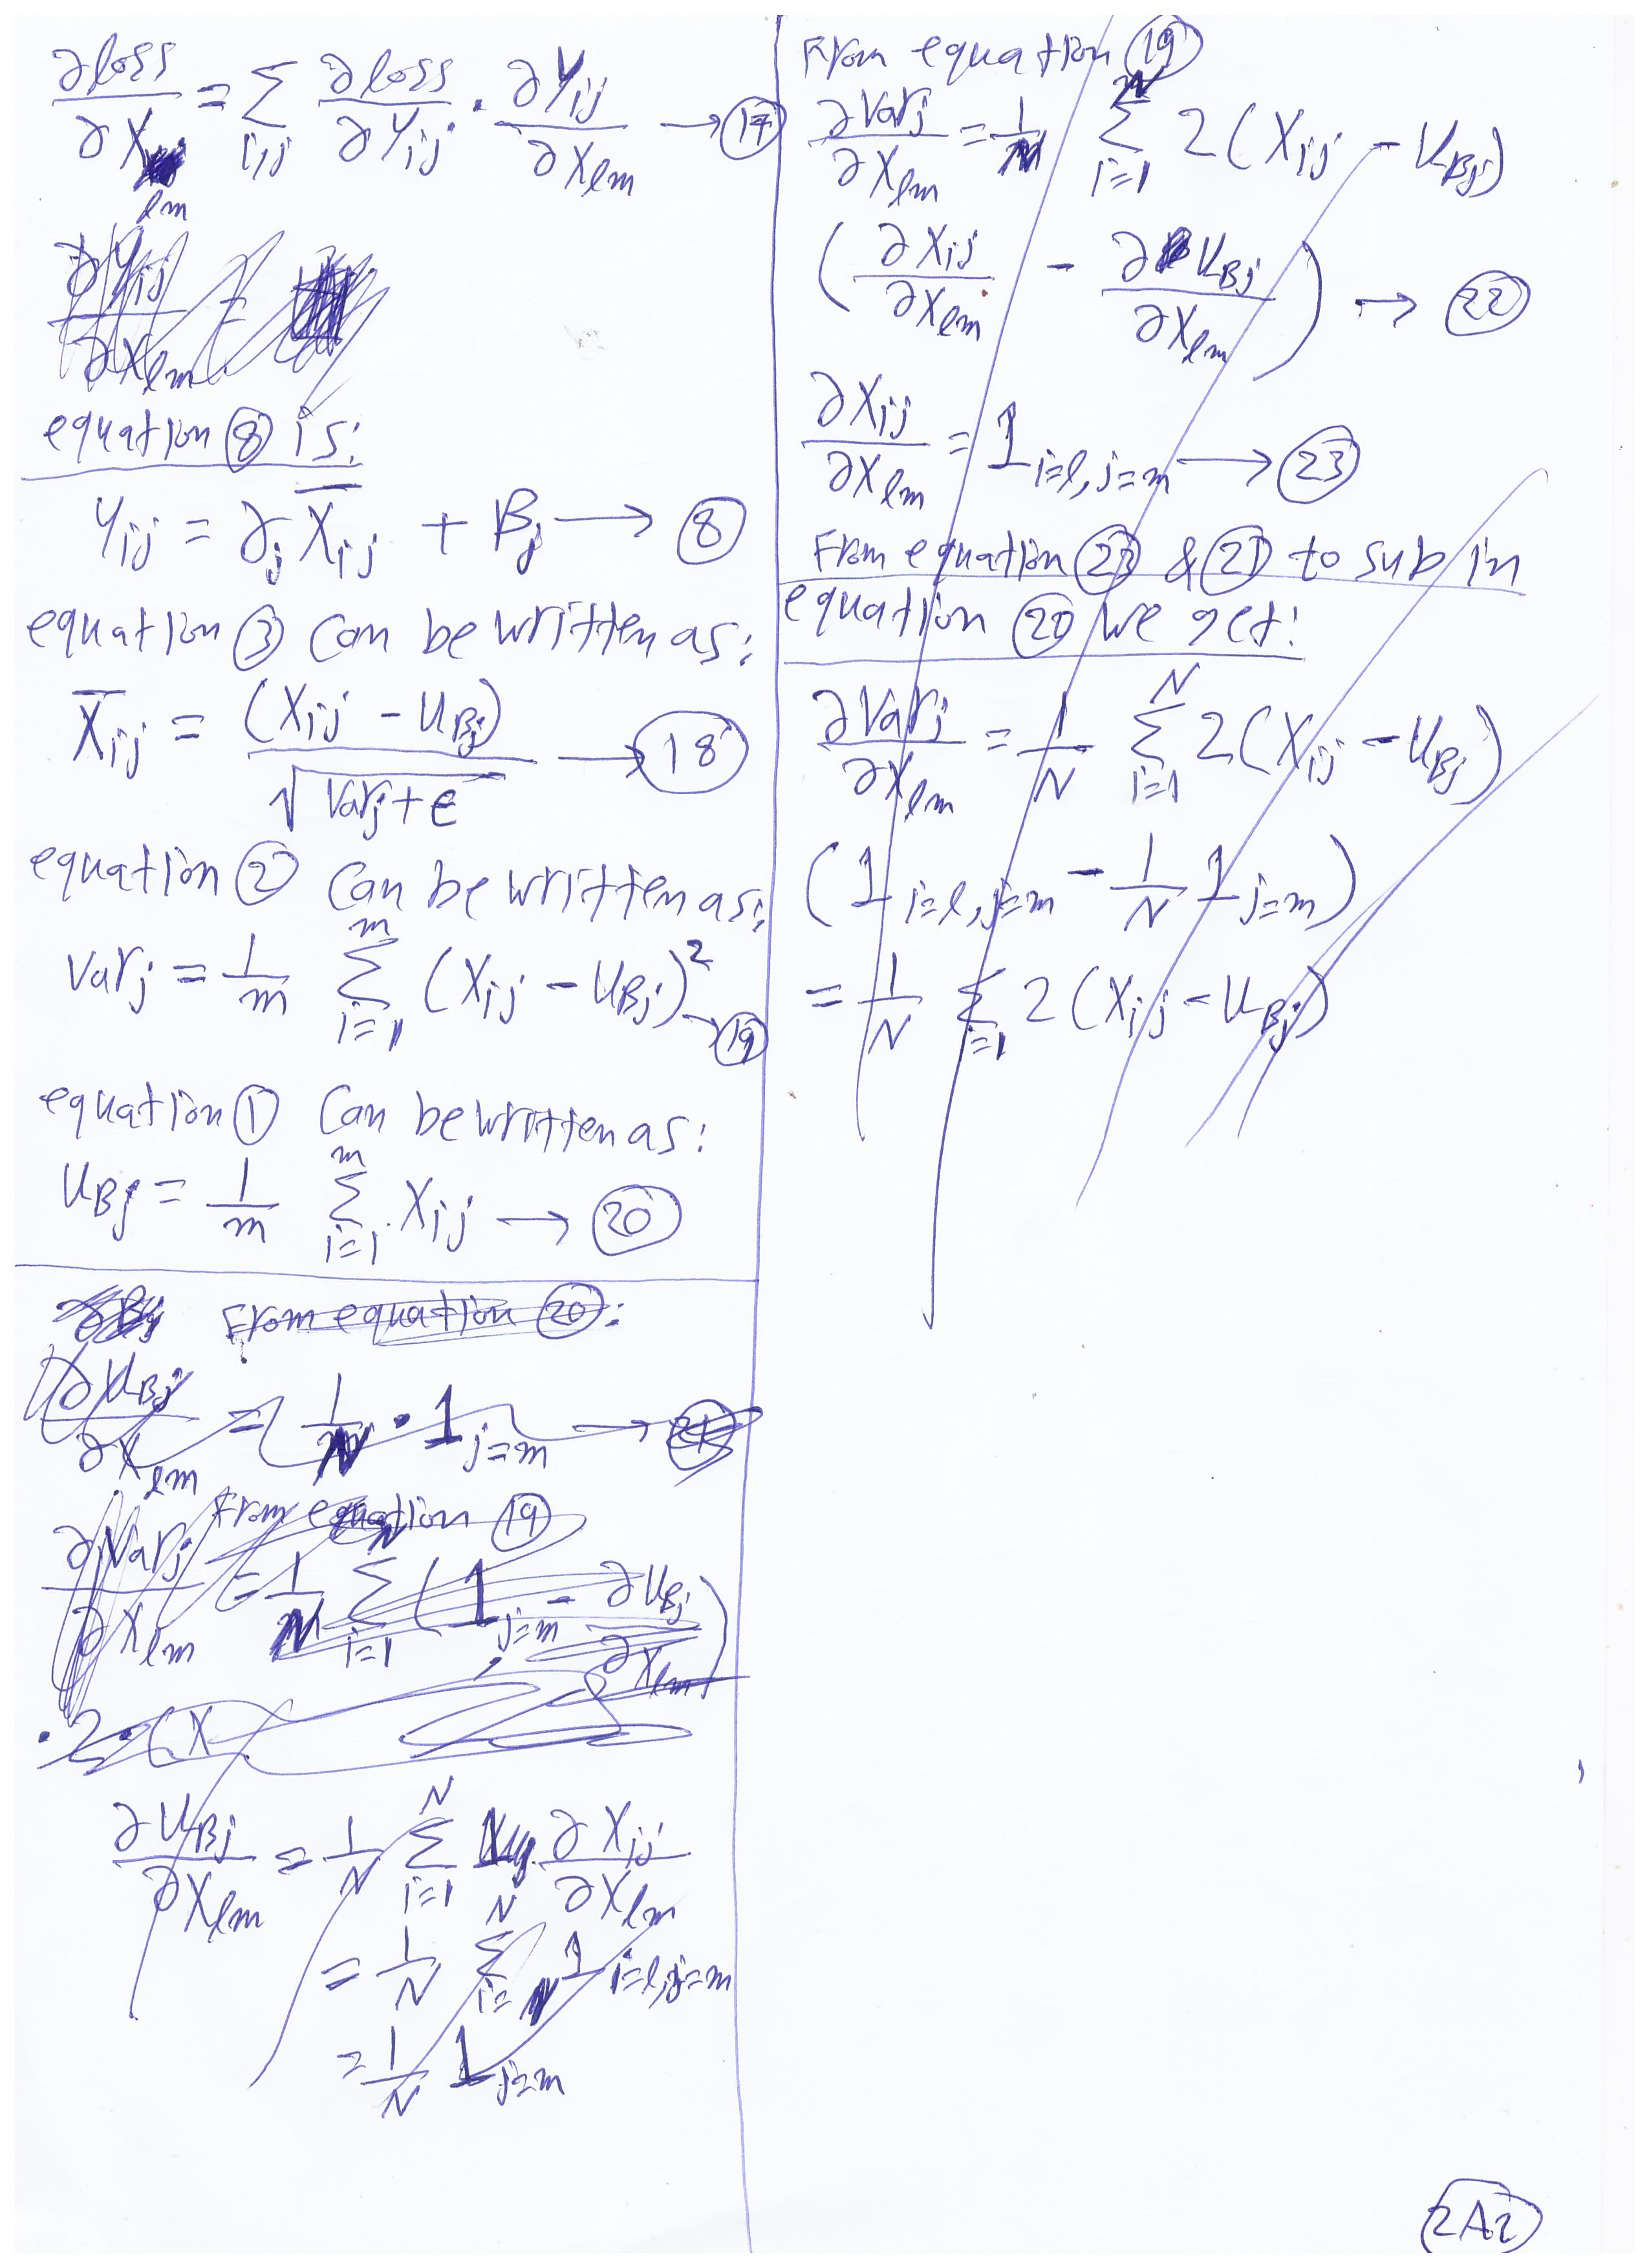 ∂loss/∂X_lm = Σ_i,j ∂loss/∂Y_ij · ∂Y_ij/∂X_lm → (17)
∂Y_ij/∂X_lm =
equation (8) is:
Y_ij = γ_j X̅_ij + B_j → (8)
equation (3) can be written as:
X̅_ij = (X_ij - U_Bj) / √(Var_j + e) → (18)
equation (2) can be written as:
Var_j = 1/m Σ_{i=1}^{m} (X_ij - U_Bj)² → (19)
equation (1) can be written as:
U_Bj = 1/m Σ_{i=1}^{m} X_ij → (20)
From equation (20):
∂U_Bj/∂X_lm = 1/N · 1_{j=m} → (21)
From equation (19)
∂Var_j/∂X_lm = 1/N Σ_{i=1}^{N} (1_{j=m} - ∂U_Bj/∂X_lm)
· 2 · (X
∂U_Bj/∂X_lm = 1/N Σ_{i=1}^{N} ∂X_ij/∂X_lm
= 1/N Σ_{i=1}^{N} 1_{i=l,j=m}
= 1/N 1_{j=m}
From equation (19)
∂Var_j/∂X_lm = 1/N Σ_{i=1}^{N} 2(X_ij - U_Bj)
(∂X_ij/∂X_lm - ∂U_Bj/∂X_lm) → (22)
∂X_ij/∂X_lm = 1_{i=l,j=m} → (23)
From equation (23) & (21) to sub in
equation (20) we get:
∂Var_j/∂X_lm = 1/N Σ_{i=1}^{N} 2(X_ij - U_Bj)
(1_{i=l,j=m} - 1/N 1_{j=m})
= 1/N Σ_{i=1} 2(X_ij - U_Bj)
2A2